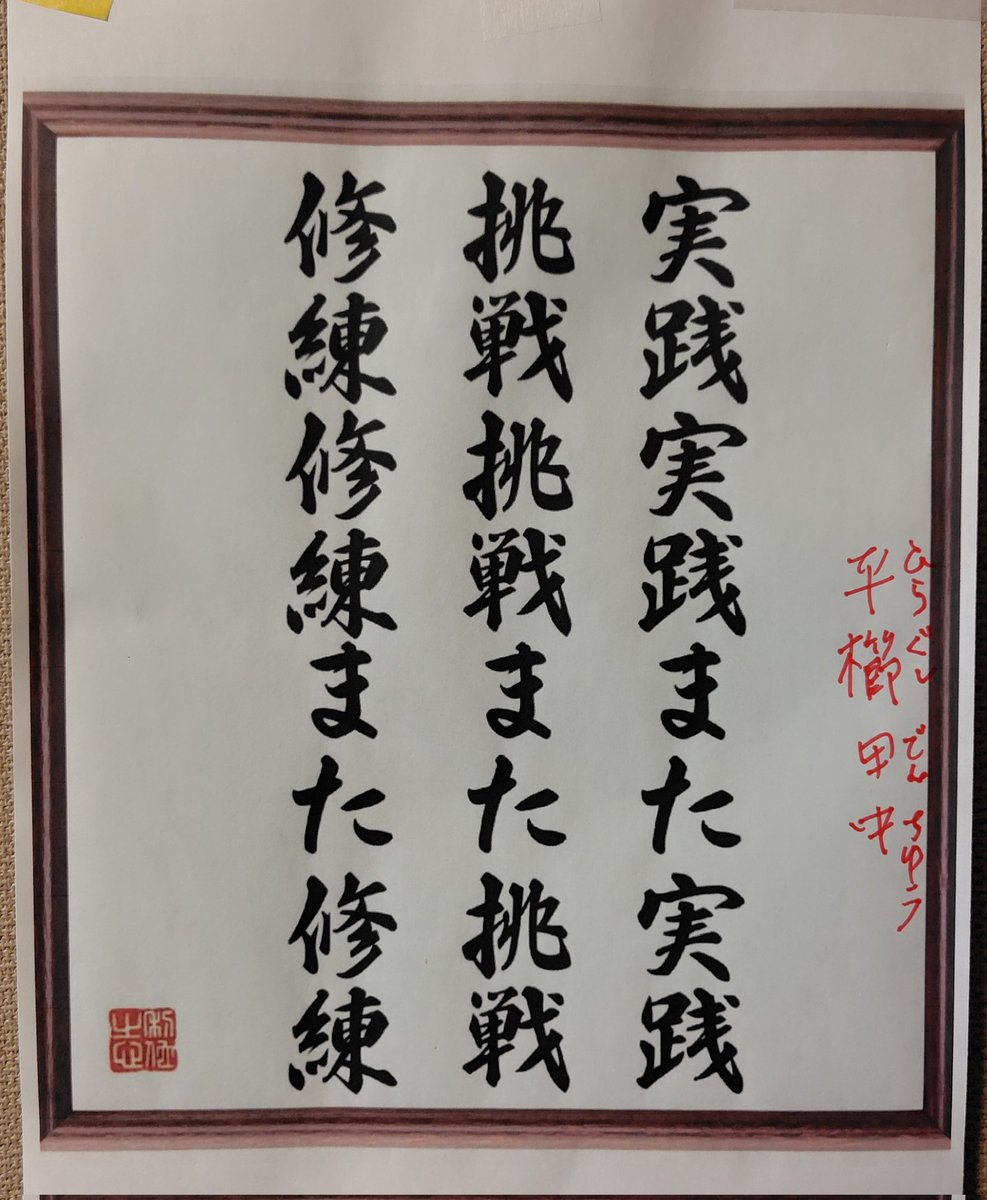 実践実践また実践
挑戦挑戦また挑戦
修練修練また修練
平櫛田中
ひらぐしでんちゅう